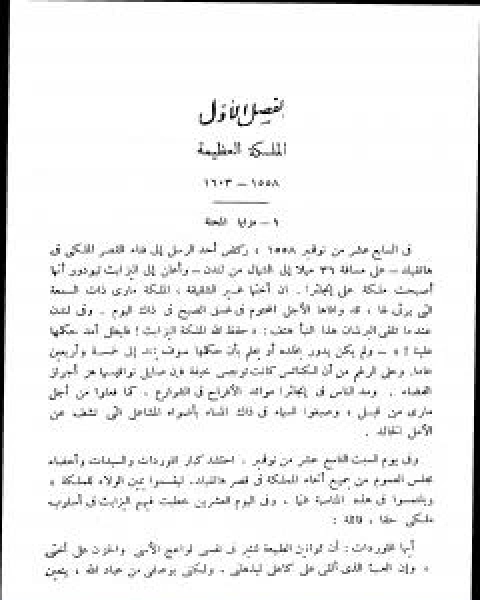 الفصل الأول
الملكة العظيمة
١٥٥٨ – ١٦٠٣
١ – مزايا المحنة
فى السابع عشر من نوفمبر ١٥٥٨ ، ركض أحد الرسل إلى فناء القصر الملكى فى
هاتفيلد – على مسافة ٣٦ ميلا إلى الشمال من لندن – وأعلن إلى اليزابث تيودور أنها
أصبحت ملكة على إنجلترا . ان أختها غير الشقيقة ، الملكة مارى ذات السمعة
التى يرثى لها ، قد وافاها الأجل المحتوم فى غسق الصبح فى ذاك اليوم . وفى لندن
عندما تلقى البرلمان هذا النبأ هتف : « حفظ الله الملكة اليزابث ! فليطل أمد حكمها
علينا ! » – ولم يكن يدور بخلده أو يحلم بأن حكمها سوف يمتد إلى خمسة وأربعين
عاما. وعلى الرغم من أن الكنائس كانت توجس خيفة فإن صليل نواقيسها هز أجواز
الفضاء . ومد الناس فى إنجلترا موائد الأفراح فى الشوارع ، كما فعلوا من أجل
مارى من قبل ، وصبغوا السماء فى ذاك المساء بأضواء المشاعل التى تشف عن
الأمل الخالد .
وفى يوم السبت التاسع عشر من نوفمبر ، احتشد كبار اللوردات والسيدات وأعضاء
مجلس العموم من جميع أنحاء المملكة فى قصر هاتفيلد، ليقسموا يمين الولاء للملكة ،
فى هذه المناسبة . وفى اليوم العشرين خطبت فيهم اليزابث فى أسلوب
ملكى حقا ، قائلة :
أيها اللوردات : أن قوانين الطبيعة تثير فى نفسى لواعج الأسى والحزن على أختى
، وإن العبء الذى ألقى على كاهلى ليذهلنى . ولكنى بوصفى من عباد الله ، يتعين